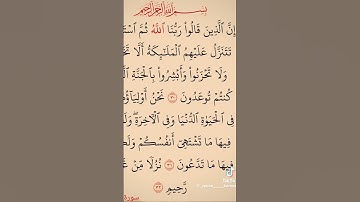 بِسْمِ اللَّهِ الرَّحْمَٰنِ الرَّحِيمِ
إِنَّ الَّذِينَ قَالُوا رَبُّنَا اللَّهُ ثُمَّ
تَتَنَزَّلُ عَلَيْهِمُ الْمَلَائِكَةُ أَلَّا
وَلَا تَحْزَنُوا وَأَبْشِرُوا بِالْجَنَّةِ
كُنتُمْ تُوعَدُونَ ٣٠ نَحْنُ
فِي الْحَيَاةِ الدُّنْيَا وَفِي الْآخِرَةِ
فِيهَا مَا تَشْتَهِي أَنفُسُكُمْ
فِيهَا مَا تَدَّعُونَ ٣١ نُزُلًا مِّنْ
رَّحِيمٍ ٣٢